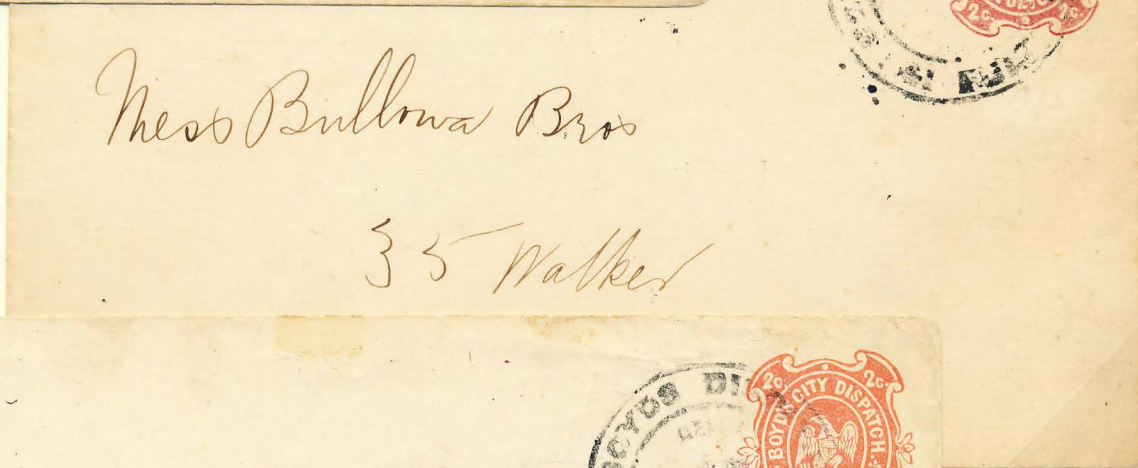 2c. 2c.
Mess Bullowa Bros
35 Walker
BOYDS DI
2c. 2c.
BOYD'S CITY DISPATCH.